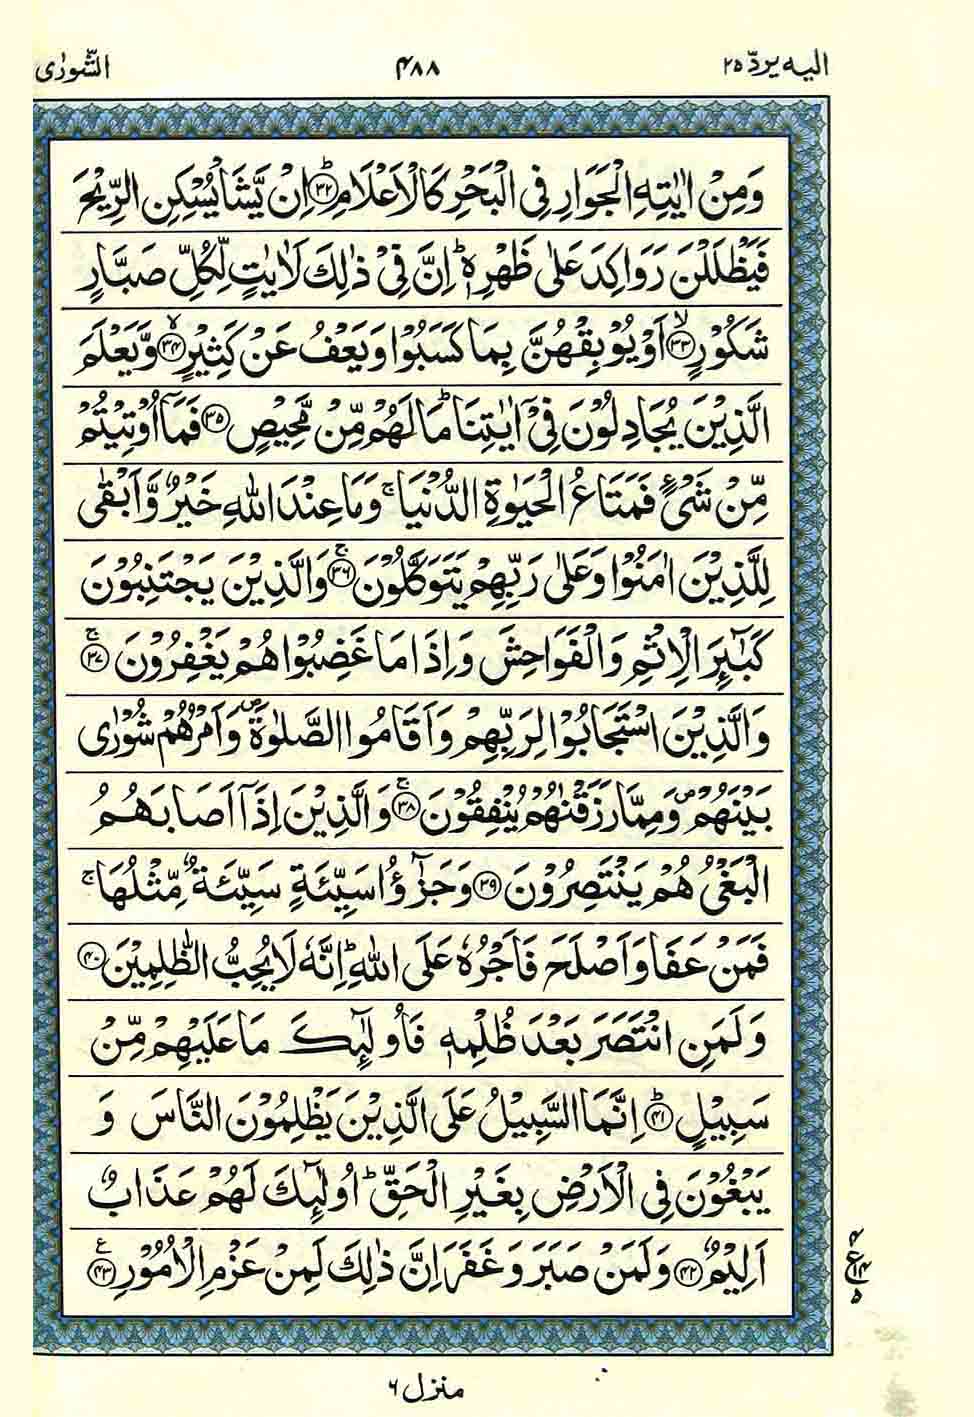 الیه یردّ ۲۵
۴۸۸
الشّورٰی
وَمِنْ اٰیٰتِهِ الْجَوَارِ فِی الْبَحْرِ كَالْاَعْلَامِ ؕ﴿۳۲﴾ اِنْ یَّشَاْ یُسْكِنِ الرِّیْحَ
فَیَظْلَلْنَ رَوَاكِدَ عَلٰی ظَهْرِهٖ ؕ اِنَّ فِیْ ذٰلِكَ لَاٰیٰتٍ لِّكُلِّ صَبَّارٍ
شَكُوْرٍ ۙ﴿۳۳﴾ اَوْ یُوْبِقْهُنَّ بِمَا كَسَبُوْا وَیَعْفُ عَنْ كَثِیْرٍ ۙ﴿۳۴﴾ وَّیَعْلَمَ
الَّذِیْنَ یُجَادِلُوْنَ فِیْۤ اٰیٰتِنَا ؕ مَا لَهُمْ مِّنْ مَّحِیْصٍ ﴿۳۵﴾ فَمَاۤ اُوْتِیْتُمْ
مِّنْ شَیْءٍ فَمَتَاعُ الْحَیٰوةِ الدُّنْیَا ۚ وَمَا عِنْدَ اللّٰهِ خَیْرٌ وَّاَبْقٰی
لِلَّذِیْنَ اٰمَنُوْا وَعَلٰی رَبِّهِمْ یَتَوَكَّلُوْنَ ۚ﴿۳۶﴾ وَالَّذِیْنَ یَجْتَنِبُوْنَ
كَبٰٓئِرَ الْاِثْمِ وَالْفَوَاحِشَ وَاِذَا مَا غَضِبُوْا هُمْ یَغْفِرُوْنَ ۚ﴿۳۷﴾
وَالَّذِیْنَ اسْتَجَابُوْا لِرَبِّهِمْ وَاَقَامُوا الصَّلٰوةَ ۪ وَاَمْرُهُمْ شُوْرٰی
بَیْنَهُمْ ۪ وَمِمَّا رَزَقْنٰهُمْ یُنْفِقُوْنَ ۚ﴿۳۸﴾ وَالَّذِیْنَ اِذَاۤ اَصَابَهُمُ
الْبَغْیُ هُمْ یَنْتَصِرُوْنَ ﴿۳۹﴾ وَجَزٰٓؤُا سَیِّئَةٍ سَیِّئَةٌ مِّثْلُهَا ۚ
فَمَنْ عَفَا وَاَصْلَحَ فَاَجْرُهٗ عَلَی اللّٰهِ ؕ اِنَّهٗ لَا یُحِبُّ الظّٰلِمِیْنَ ﴿۴۰﴾
وَلَمَنِ انْتَصَرَ بَعْدَ ظُلْمِهٖ فَاُولٰٓئِكَ مَا عَلَیْهِمْ مِّنْ
سَبِیْلٍ ؕ﴿۴۱﴾ اِنَّمَا السَّبِیْلُ عَلَی الَّذِیْنَ یَظْلِمُوْنَ النَّاسَ وَ
یَبْغُوْنَ فِی الْاَرْضِ بِغَیْرِ الْحَقِّ ؕ اُولٰٓئِكَ لَهُمْ عَذَابٌ
اَلِیْمٌ ﴿۴۲﴾ وَلَمَنْ صَبَرَ وَغَفَرَ اِنَّ ذٰلِكَ لَمِنْ عَزْمِ الْاُمُوْرِ ﴿۴۳﴾ ع
۴
ع ۱۴
۵
منزل ۶